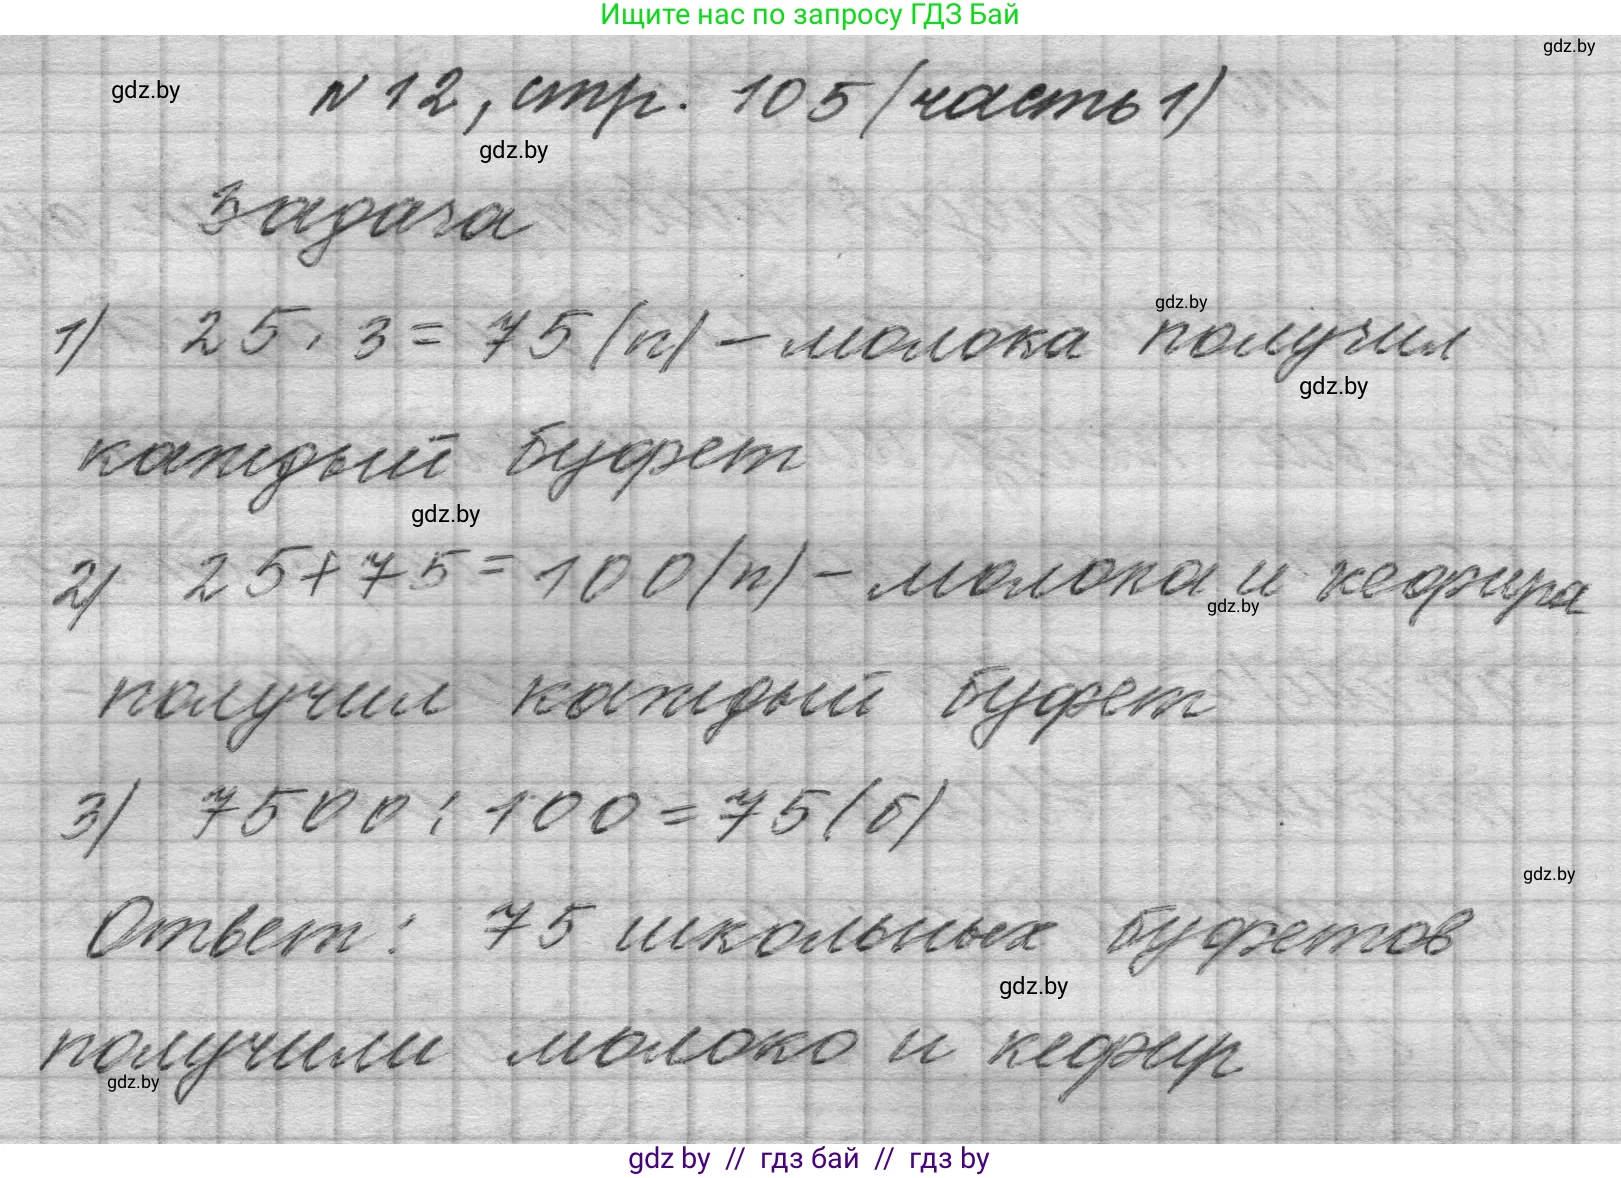 Ищите нас по запросу ГДЗ Бай
gdz.by
gdz.by
№ 12, стр. 105 (часть 1)
gdz.by
Задача
gdz.by
1) 25 · 3 = 75 (п) – молока получил
gdz.by
каждый буфет
gdz.by
2) 25 + 75 = 100 (п) – молока и кефира
gdz.by
получил каждый буфет
3) 7500 : 100 = 75 (б)
gdz.by
Ответ: 75 школьных буфетов
gdz.by
получили молоко и кефир
gdz.by
gdz by // гдз бай // гдз by